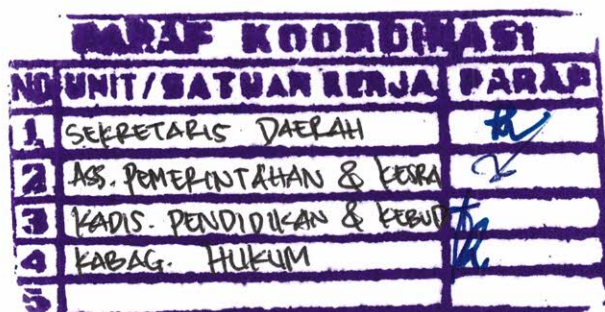 PARAF KOORDINASI
NO UNIT/SATUAN KERJA PARAF
1 SEKRETARIS DAERAH
2 ASS. PEMERINTAHAN & KESRA
3 KADIS. PENDIDIKAN & KEBUD
4 KABAG. HUKUM
5